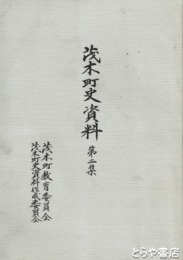 茂木町史資料
第二集
茂木町教育委員会
茂木町史資料作成委員会
とらや書店